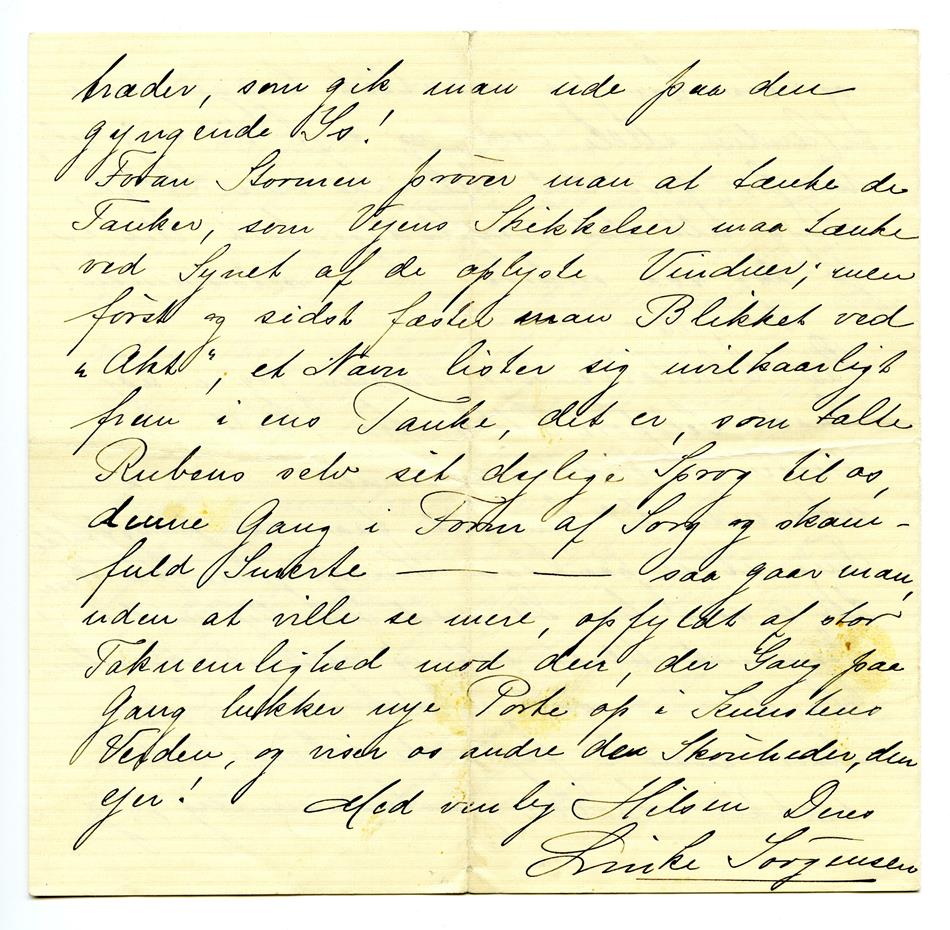 træder, som gik man ude paa den
gyngende Is!
Foran Stormen prøver man at tænke de
Tanker, som Vejens Skikkelser maa tænke
ved Synet af de oplyste Vinduer; men
først og sidst fæster man Blikket ved
"Akt", et Navn lister sig uvilkaarligt
frem i ens Tanke, det er, som talte
Rubens selv sit dejlige Sprog til os,
denne Gang i Form af Sorg og skam-
fuld Smerte — — saa gaar man,
uden at ville se mere, opfyldt af stor
Taknemlighed mod den, der Gang paa
Gang lukker nye Porte op i Kunstens
Verden, og viser os andre de Skønheder, den
ejer!
Med venlig Hilsen Deres
Sørgensen